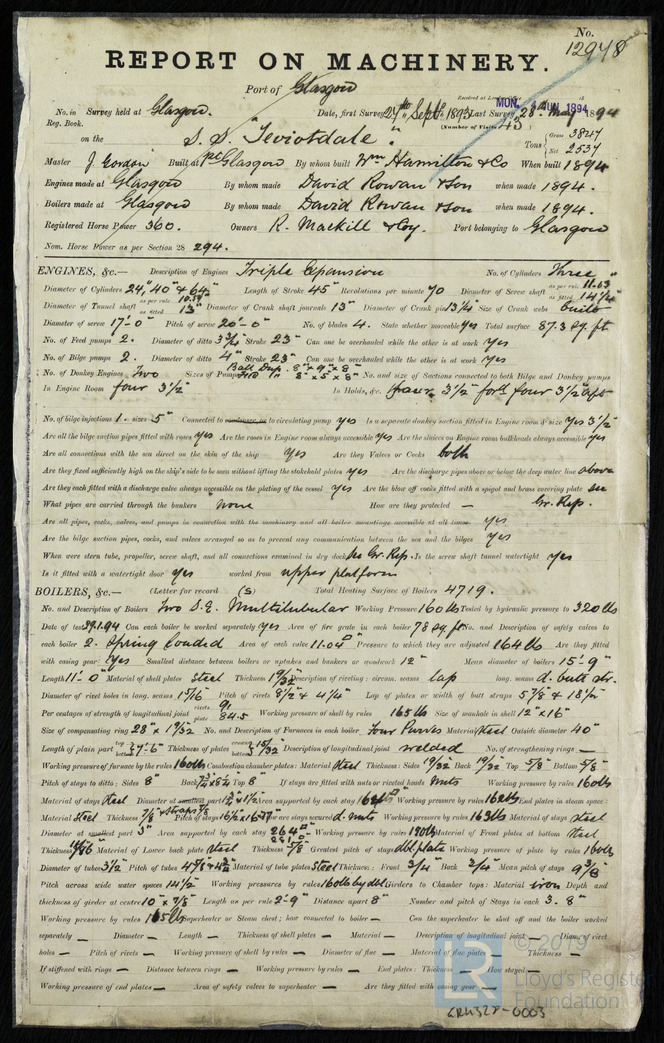 No.
12948
REPORT ON MACHINERY.
Port of Glasgow
Received at London
MON. 4 JUN 1894
No. in Survey held at Glasgow. Date, first Survey 27th Sept 1893 Last Survey 28th May 1894
Reg. Book. (Number of Visits 43)
on the S.S. "Teviotdale." Tons Gross 3847 Net 2537
Master J. Gordon Built at Glasgow By whom built Wm Hamilton & Co When built 1894
Engines made at Glasgow By whom made David Rowan & Son when made 1894.
Boilers made at Glasgow By whom made David Rowan & Son when made 1894.
Registered Horse Power 360. Owners R. Mackill & Coy. Port belonging to Glasgow
Nom. Horse Power as per Section 28 294.
ENGINES, &c.— Description of Engines Triple Expansion No. of Cylinders Three
Diameter of Cylinders 24", 40" & 64" Length of Stroke 45" Revolutions per minute 70 Diameter of Screw shaft as per rule 11.63" as fitted 14 1/4"
Diameter of Tunnel shaft as per rule 10.59" as fitted 13" Diameter of Crank shaft journals 13" Diameter of Crank pin 13 1/4" Size of Crank webs built
Diameter of screw 17'-0" Pitch of screw 20'-0" No. of blades 4. State whether moveable yes Total surface 87.3 sq. ft
No. of Feed pumps 2. Diameter of ditto 3 3/4" Stroke 23" Can one be overhauled while the other is at work yes
No. of Bilge pumps 2. Diameter of ditto 4" Stroke 23" Can one be overhauled while the other is at work yes
No. of Donkey Engines Two Sizes of Pumps Ball Dup. 8" x 9" x 8" Feed " " x 5" x 8" No. and size of Suctions connected to both Bilge and Donkey pumps
In Engine Room four 3 1/2" In Holds, &c. four 3 1/2" ford four 3 1/2" aft
No. of bilge injections 1. sizes 5" Connected to condenser, or to circulating pump yes Is a separate donkey suction fitted in Engine room & size yes 3 1/2"
Are all the bilge suction pipes fitted with roses yes Are the roses in Engine room always accessible yes Are the sluices on Engine room bulkheads always accessible yes
Are all connections with the sea direct on the skin of the ship yes Are they Valves or Cocks both
Are they fixed sufficiently high on the ship's side to be seen without lifting the stokehold plates yes Are the discharge pipes above or below the deep water line above
Are they each fitted with a discharge valve always accessible on the plating of the vessel yes Are the blow off cocks fitted with a spigot and brass covering plate see
What pipes are carried through the bunkers none How are they protected — Gr. Rep.
Are all pipes, cocks, valves, and pumps in connection with the machinery and all boiler mountings accessible at all times yes
Are the bilge suction pipes, cocks, and valves arranged so as to prevent any communication between the sea and the bilges yes
When were stern tube, propeller, screw shaft, and all connections examined in dry dock See Gr. Rep. Is the screw shaft tunnel watertight yes
Is it fitted with a watertight door yes worked from upper platform
BOILERS, &c.— (Letter for record (S) Total Heating Surface of Boilers 4719.
No. and Description of Boilers Two S.E. Multitubular Working Pressure 160 lbs Tested by hydraulic pressure to 320 lbs
Date of test 29.1.94 Can each boiler be worked separately yes Area of fire grate in each boiler 78 sq. ft. No. and Description of safety valves to
each boiler 2. Spring loaded Area of each valve 11.04 □" Pressure to which they are adjusted 164 lbs Are they fitted
with easing gear yes Smallest distance between boilers or uptakes and bunkers or woodwork 12" Mean diameter of boilers 15'-9"
Length 11'-0" Material of shell plates steel Thickness 19/32 Description of riveting: circum. seams lap long. seams d. butt str.
Diameter of rivet holes in long. seams 15/16 Pitch of rivets 8 1/2 & 4 1/4" Lap of plates or width of butt straps 5 7/8 & 18 1/2"
Per centages of strength of longitudinal joint rivets 91 plate 84.5 Working pressure of shell by rules 165 lbs Size of manhole in shell 12" x 16"
Size of compensating ring 28" x 1 9/32 No. and Description of Furnaces in each boiler Four Purves Material steel Outside diameter 40"
Length of plain part top bottom 7'-6" Thickness of plates crown bottom 15/32 Description of longitudinal joint welded No. of strengthening rings —
Working pressure of furnace by the rules 160 lbs Combustion chamber plates: Material steel Thickness: Sides 19/32 Back 19/32 Top 5/8" Bottom 5/8"
Pitch of stays to ditto: Sides 8" Back 7 3/4 x 8 1/2 Top 8" If stays are fitted with nuts or riveted heads Nuts Working pressure by rules 160 lbs
Material of stays steel Diameter at smallest part Area supported by each stay Working pressure by rules 162 lbs End plates in steam space:
Material steel Thickness Pitch of stays How are stays secured d. nuts Working pressure by rules 163 lbs Material of stays steel
Diameter at smallest part 3" Area supported by each stay Working pressure by rules 170 lbs Material of Front plates at bottom steel
Thickness Material of Lower back plate steel Thickness 5/8" Greatest pitch of stays dbl plate Working pressure of plate by rules 160 lbs
Diameter of tubes 3 1/2" Pitch of tubes 4 7/8 x 4 3/4" Material of tube plates steel Thickness: Front 3/4" Back 3/4" Mean pitch of stays 9 3/8"
Pitch across wide water spaces 14 1/2" Working pressures by rules 160 lbs by dbl Girders to Chamber tops: Material iron Depth and
thickness of girder at centre 10" x 7/8" Length as per rule 2'-9" Distance apart 8" Number and pitch of Stays in each 3. 8"
Working pressure by rules 165 lbs Superheater or Steam chest; how connected to boiler — Can the superheater be shut off and the boiler worked
separately — Diameter — Length — Thickness of shell plates — Material — Description of longitudinal joint — Diam. of rivet
holes — Pitch of rivets — Working pressure of shell by rules — Diameter of flue — Material of flue plates — Thickness —
If stiffened with rings — Distance between rings — Working pressure by rules — End plates: Thickness — How stayed —
Working pressure of end plates — Area of safety valves to superheater — Are they fitted with easing gear —
© 2019
LR
Lloyd's Register
Foundation
GRK327-0003